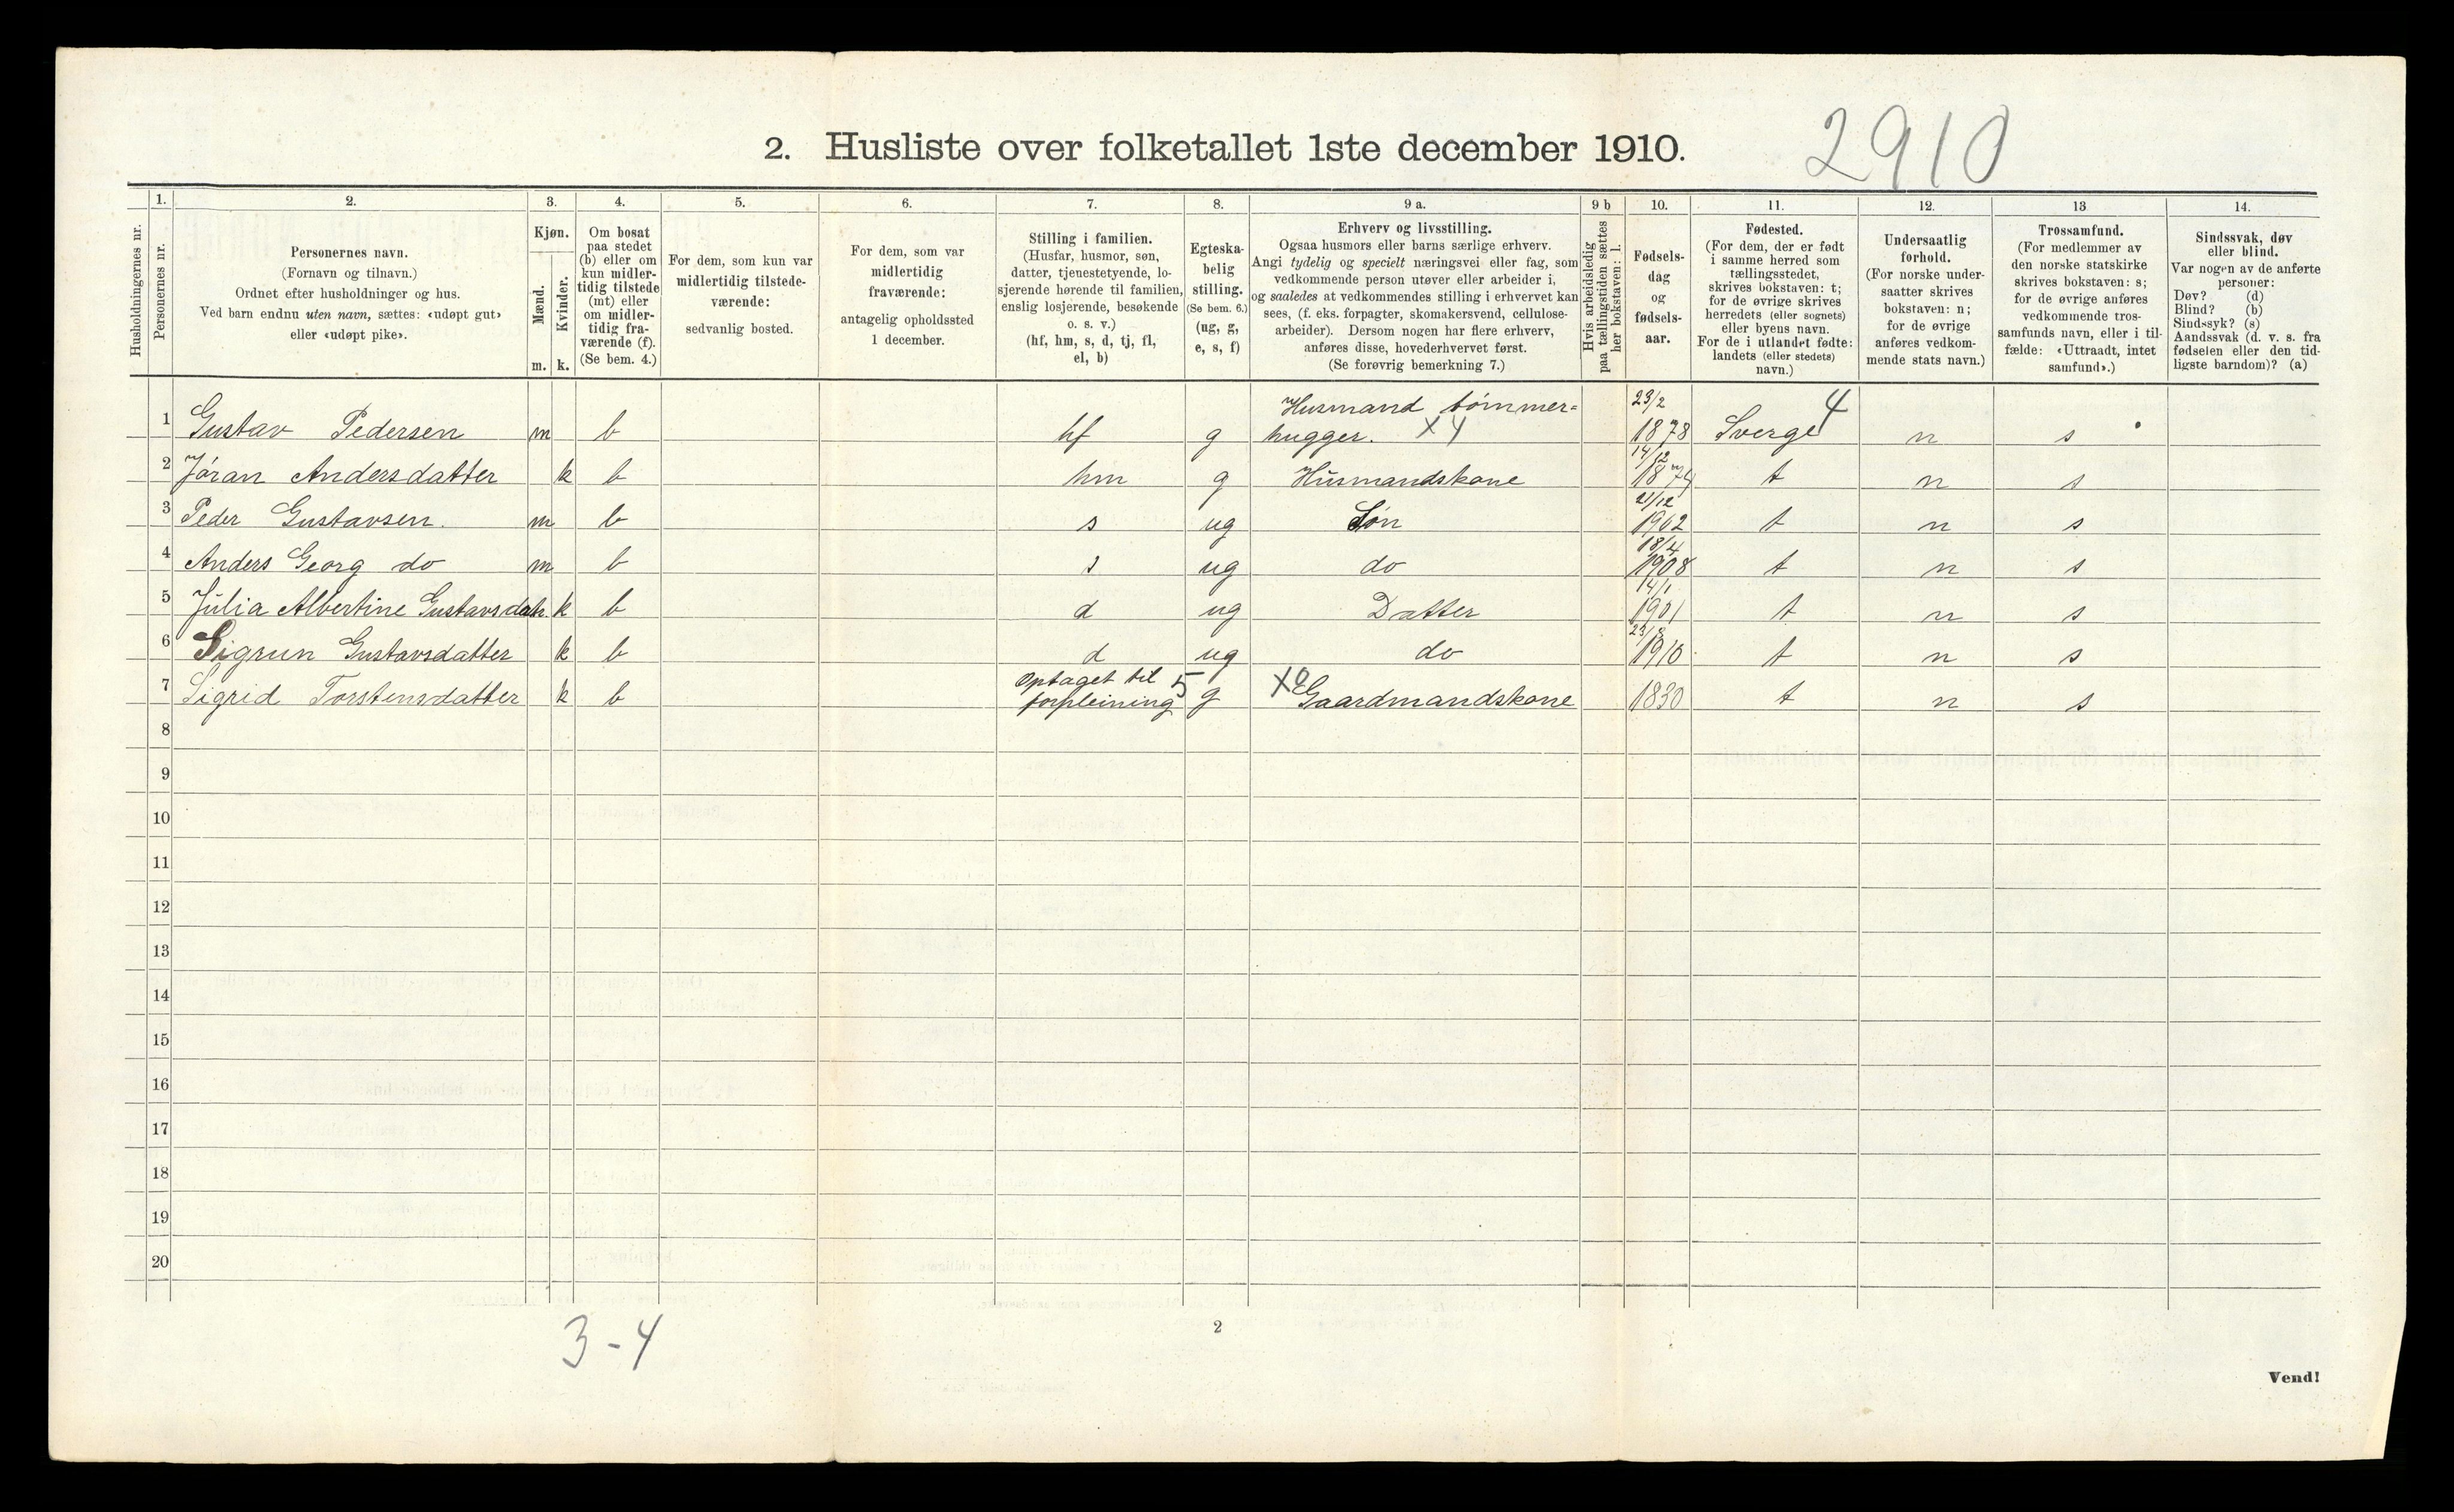 2910
2. Husliste over folketallet 1ste december 1910.
Husholdningernes nr.
1.
Personernes nr.
2.
Personernes navn.
(Fornavn og tilnavn.)
Ordnet efter husholdninger og hus.
Ved barn endnu uten navn, sættes: «udøpt gut»
eller «udøpt pike».
3.
Kjøn.
Mænd.
Kvinder.
m. k.
4.
Om bosat
paa stedet
(b) eller om
kun midler-
tidig tilstede
(mt) eller
om midler-
tidig fra-
værende (f).
(Se bem. 4.)
5.
For dem, som kun var
midlertidig tilstede-
værende:
sedvanlig bosted.
6.
For dem, som var
midlertidig
fraværende:
antagelig opholdssted
1 december.
7.
Stilling i familien.
(Husfar, husmor, søn,
datter, tjenestetyende, lo-
sjerende hørende til familien,
enslig losjerende, besøkende
o. s. v.)
(hf, hm, s, d, tj, fl,
el, b)
8.
Egteska-
belig
stilling.
(Se bem. 6.)
(ug, g,
e, s, f)
9 a.
Erhverv og livsstilling.
Ogsaa husmors eller barns særlige erhverv.
Angi tydelig og specielt næringsvei eller fag, som
vedkommende person utøver eller arbeider i,
og saaledes at vedkommendes stilling i erhvervet kan
sees, (f. eks. forpagter, skomakersvend, cellulose-
arbeider). Dersom nogen har flere erhverv,
anføres disse, hovederhvervet først.
(Se forøvrig bemerkning 7.)
9 b
Hvis arbeidsledig
paa tællingstiden sættes
her bokstaven: l.
10.
Fødsels-
dag
og
fødsels-
aar.
11.
Fødested.
(For dem, der er født
i samme herred som
tællingsstedet,
skrives bokstaven: t;
for de øvrige skrives
herredets (eller sognets)
eller byens navn.
For de i utlandet fødte:
landets (eller stedets)
navn.)
12.
Undersaatlig
forhold.
(For norske under-
saatter skrives
bokstaven: n;
for de øvrige
anføres vedkom-
mende stats navn.)
13
Trossamfund.
(For medlemmer av
den norske statskirke
skrives bokstaven: s;
for de øvrige anføres
vedkommende tros-
samfunds navn, eller i til-
fælde: «Uttraadt, intet
samfund».)
14.
Sindssvak, døv
eller blind.
Var nogen av de anførte
personer:
Døv? (d)
Blind? (b)
Sindssyk? (s)
Aandssvak (d. v. s. fra
fødselen eller den tid-
ligste barndom)? (a)
Husmand tømmer= 23/2 4
1 Gustav Pedersen m b hf g hugger. X4 1878 Sverge n s
14/12
2 Jöran Andersdatter k b hm g Husmandskone 1874 t n s
21/12
3 Peder Gustavsen. m b s ug Søn 1902 t n s
18/4
4 Anders Georg do m b s ug do 1908 t n s
14/1
5 Julia Albertine Gustavsdatr. k b d ug Datter 1901 t n s
6 Sigrun Gustavsdatter k b d ug do 1910 t n s
optaget til 5
7 Sigrid Torstensdatter k b forpleining g X0 Gaardmandskone 1830 t n s
8
9
10
11
12
13
14
15
16
17
18
19
20
3-4
2
Vend!